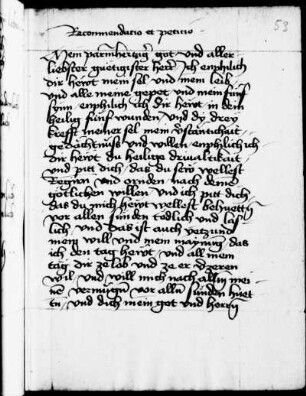 53
Recommendatio et peticio
Mein parmhercziger got und aller
liebster guetigister herr Ich enphilch
dir hewt mein sel und mein leib
und alle meine gepet und mein fünf
synn enphilch ich dir hewt in dein
heilig fünf wunden und dy drey
krefft meiner sel mein verstantichait
gedächtnuss und willen enphilch ich
dir hewt du heilige drivaltikait
und pitt dich das du sein wellest
Regirn und ornden nach deinē
götlichen willen Und ich pitt dich
das du mich hewt wellest behuettn
vor allen sünden tödlich und läs
lich und das ist auch yetzund
mein will und mein maynung das
ich den tag hewt und all mein
täg dir ze lob und ze er verczeren
wil und will mich nach allm mei
nē vermügen vor alln sünden huet
tn und dich mein got und herrn